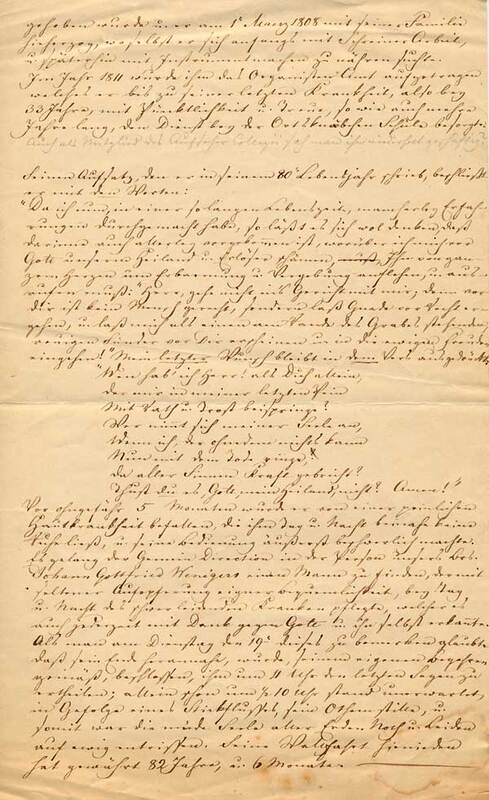 gehoben wurde u. er am 1ⁿ Maerz 1808 mit seiner Familie
hieherzog, woselbst er sich anfangs mit Schreiner Arbeit,
u. späterhin mit Instrumentmachen zu nähren suchte.
Im Jahr 1811 wurde ihm das Organisten Amt aufgetragen
welches er bis zu seiner letzten Krankheit, also bey
33 Jahre, mit Pünktlichkeit u. Treue, so wie auch einige
Jahre lang, den Dienst bey der Ortsknaben Schule besorgte.
Auch als Mitglied des Aufseher Collegii sah man ihn
Seinen Aufsatz, den er in seinem 80ⁿ Lebensjahr schrieb, beschließt
er mit den Worten:
"Da ich nun, in einer so langen Lebenszeit, mancherley Erfah-
rungen durchgemacht habe, so läßt es sich wol denken daß
darinnen auch allerley vorgekommen ist, worüber ich mich vor
Gott unserm Heiland u. Erlöser schämen, Ihn von gan-
zem Herzen um Erbarmung u. Vergebung anflehen, u. aus-
rufen muß: "Herr, gehe nicht ins Gericht mit mir, denn vor
dir ist kein Mensch gerecht, sondern laß Gnade vor Recht er-
gehen, u. laß mich als einen am Rande des Grabes stehenden,
reuigen Sünder vor Dir erscheinen u. in die ewigen Freuden
eingehen!" Mein letzter Wunsch bleibt in dem Vers ausgedrückt:
"Wen hab' ich Herr! als Dich allein,
Der mir in meiner letzten Pein
Mit Rath u. Trost beispringe?
Wer nimt sich meiner Seele an,
Wenn ich, der ohnedem nichts kann
Nun mit dem Tode ringe,
Da aller Sinnen Kraft gebricht?
Thust du es, Gott, mein Heiland, nicht? Amen!"
Vor ohngefähr 5 Monaten wurde er von einer peinlichen
Hautkrankheit befallen, die ihm Tag u. Nacht beinahe keine
Ruhe ließ, u. seine Bedienung äußerst beschwerlich machte.
Es gelang der Gemein Direction in der Person unsers Br.
Johann Gottfried einen Mann zu finden, der mit
seltener Aufopferung eigner Bequemlichkeit, bey Tag
u. Nacht des schwer leidenden Kranken pflegte, welches er
auch jederzeit mit Dank gegen Gott u. Ihn selbst erkante.
Als man am Dienstag den 19ⁿ dieses zu bemerken glaubte
daß sein End herannahe, wurde, seinem eigenen Begehren
gemäß, beschlossen, ihm um 11 Uhr den letzten Segen zu
ertheilen; allein schon um ½ 10 Uhr stand unerwartet,
in Gefolge eines Stickflusses, sein Othem stille, u.
somit war die müde Seele aller Erden Noth u. Leiden
auf ewig entrissen. Seine Wallfahrt hienieden
hat gewährt 82 Jahre, u. 6 Monate.